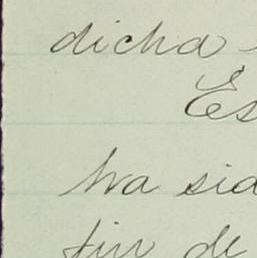 dicha
Es
ha sid
fin de